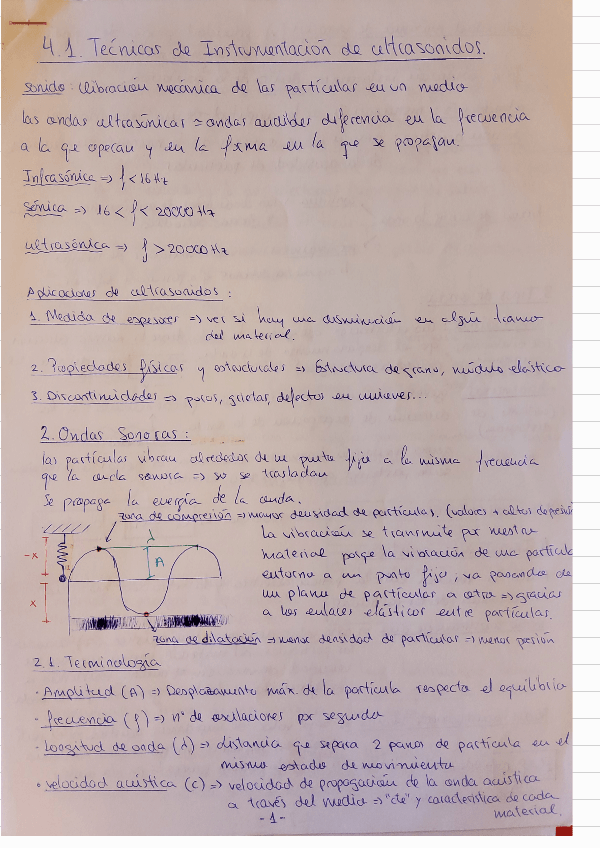 4.1. Técnicas de Instrumentación de ultrasonidos.
Sonido: Vibración mecánica de las partículas en un medio
las ondas ultrasónicas = ondas audibles diferencia en la frecuencia
a la que operan y en la forma en la que se propagan.
Infrasónica => f < 16 Hz
Sónica => 16 < f < 20000 Hz
ultrasónica => f > 20000 Hz
Aplicaciones de ultrasonidos:
1. Medida de espesores => ver si hay una disminución en algún tramo
del material.
2. Propiedades físicas y estructurales => Estructura de grano, módulo elástico
3. Discontinuidades => poros, grietas, defectos en
2. Ondas Sonoras:
las partículas vibran alrededor de un punto fijo a la misma frecuencia
que la onda sonora => se trasladan
Se propaga la energía de la onda.
zona de compresión => mayor densidad de partículas. (valores + altos de presión
-x
x
λ
A
La vibración se transmite por nuestro
material porqe la vibración de una partícula
entorno a un punto fijo, va pasando de
un plano de partículas a otro => gracias
a los enlaces elásticos entre partículas.
zona de dilatación => menor densidad de partículas => menor presión
2.1. Terminología
· Amplitud (A) => Desplazamiento máx. de la partícula respecto el equilibrio
· frecuencia (f) => nº de oscilaciones por segundo
· Longitud de onda (λ) => distancia que separa 2 panos de partícula en el
mismo estado de movimiento
· velocidad acústica (c) => velocidad de propagación de la onda acústica
a través del medio => "cte" y característica de cada
material.
-1-